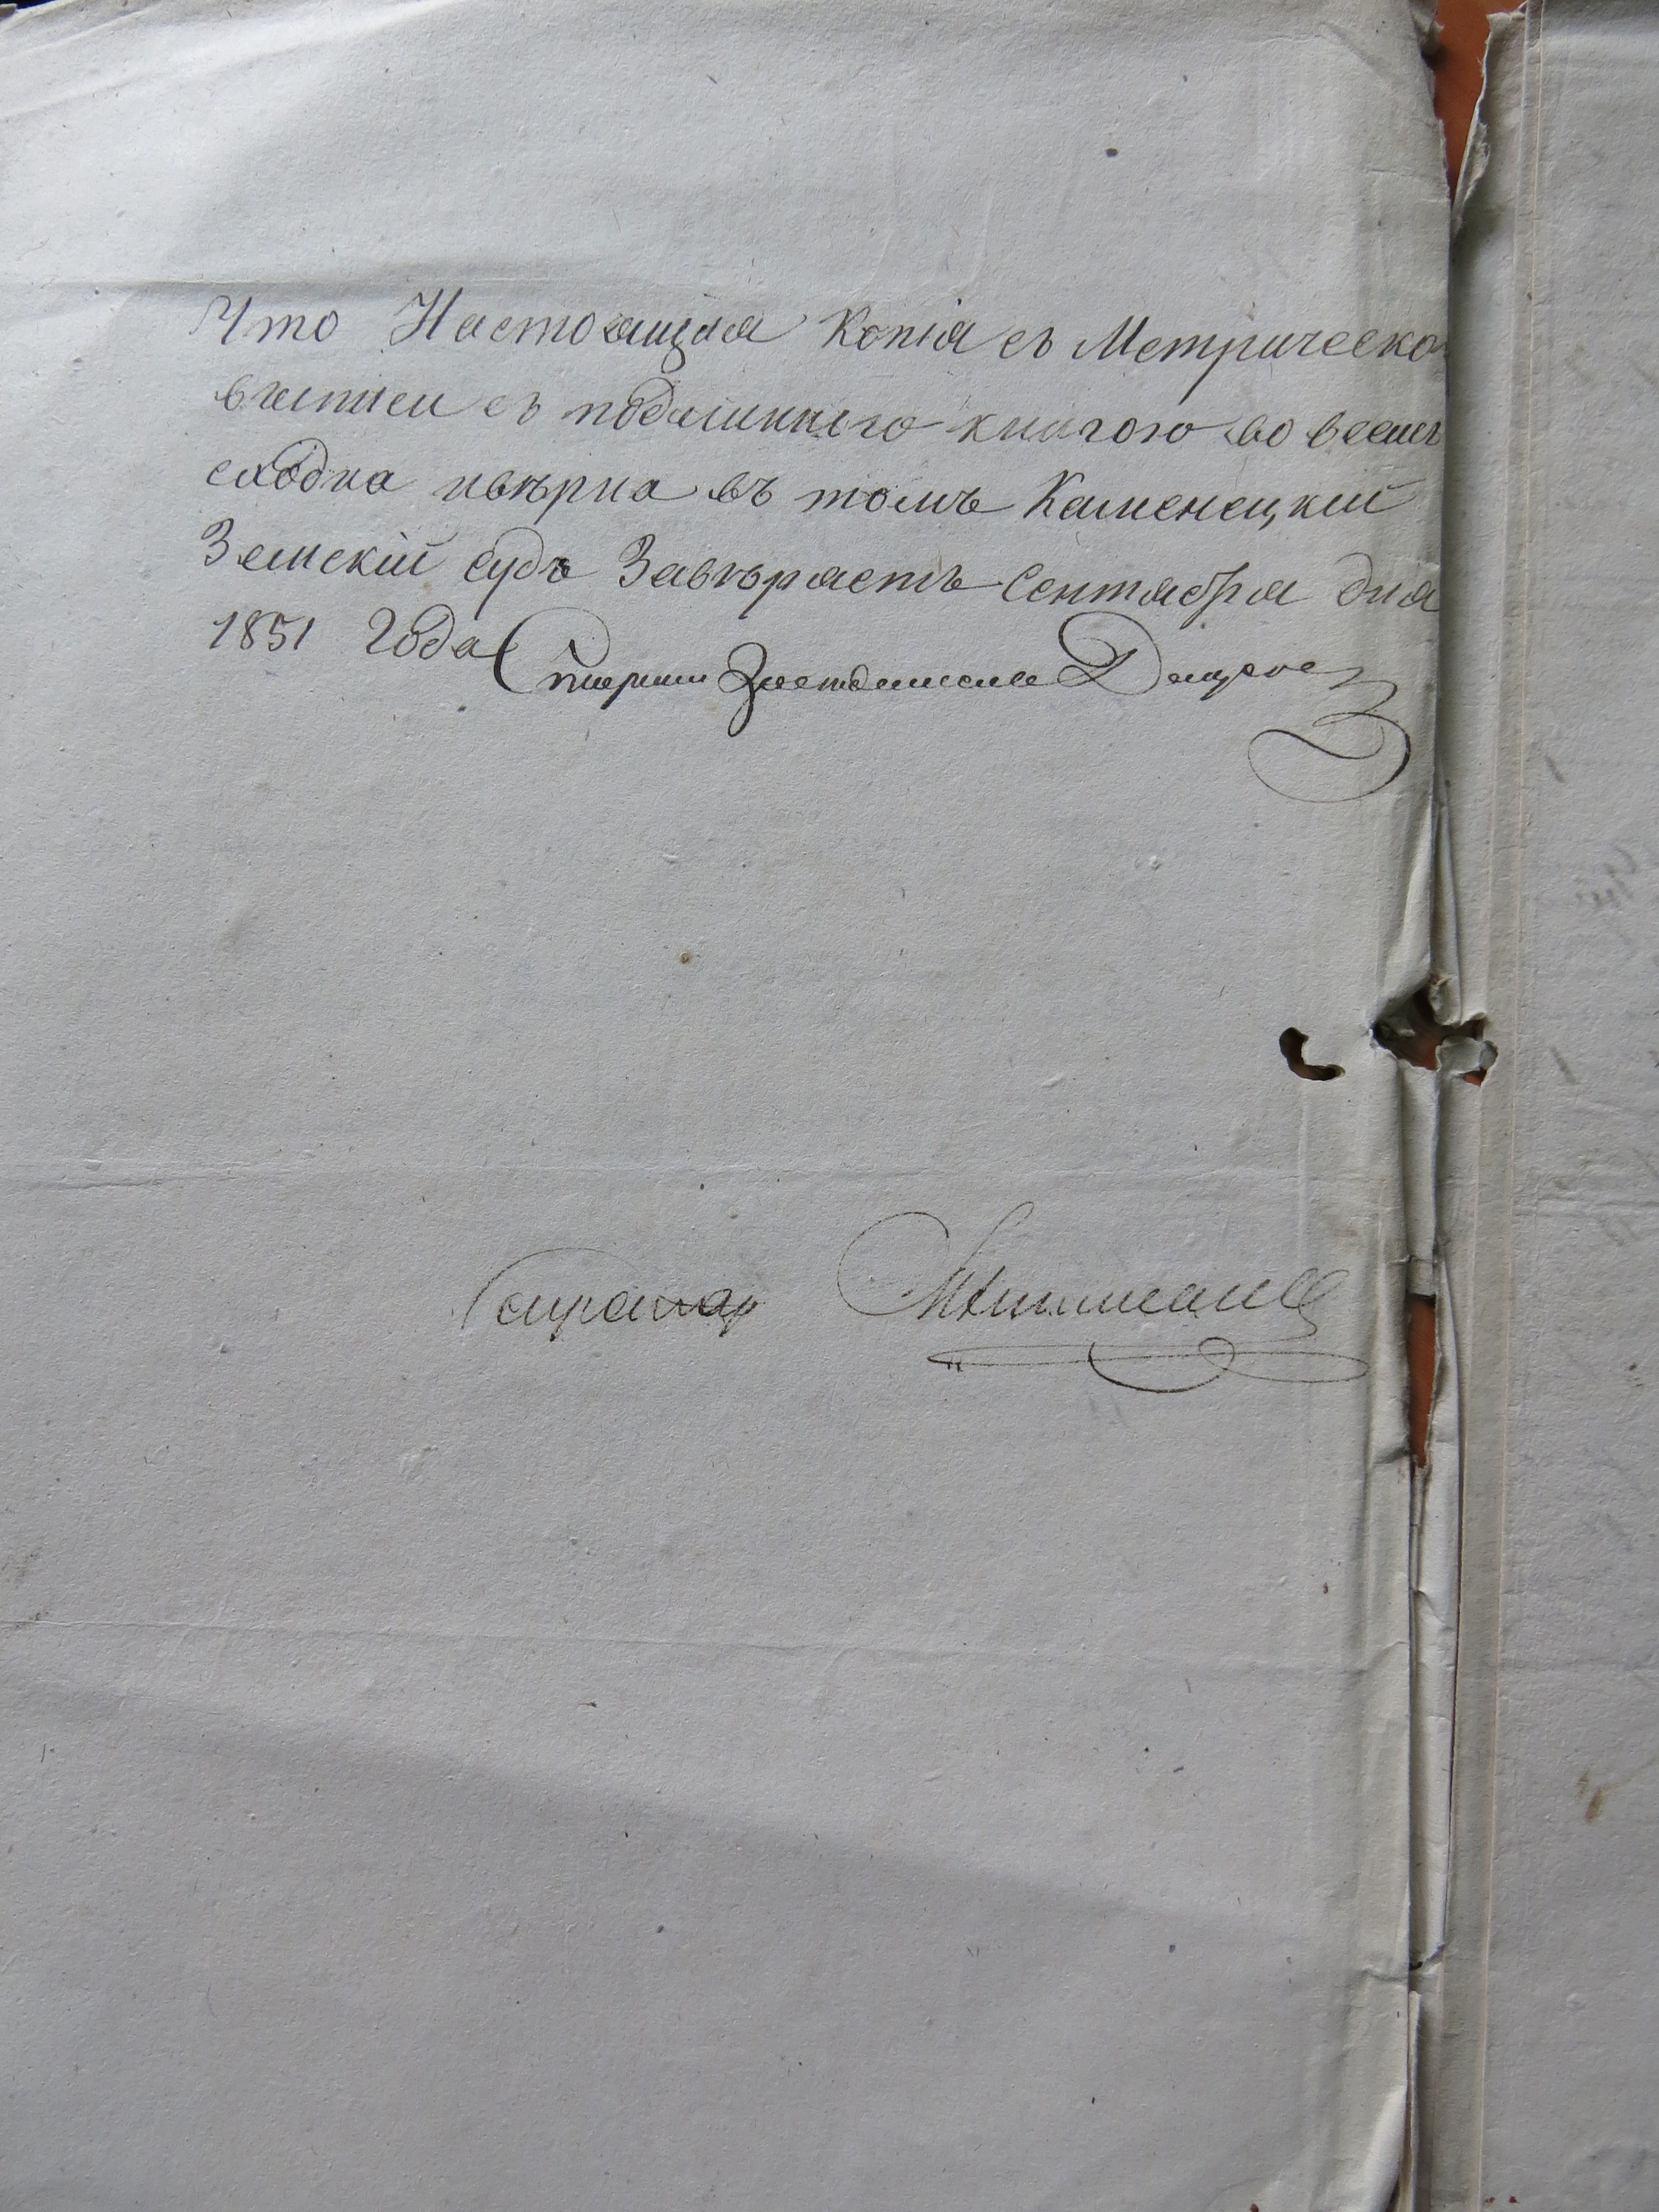 Что Настоящая Копія съ Метрическо
выписи съ подлинного книгою во всемъ
сходна ивѣрна въ томъ Каменецкій
Земскій Судъ Завѣряетъ Сентября дня
1851 Года Старшій Засѣдатель
Секретарь